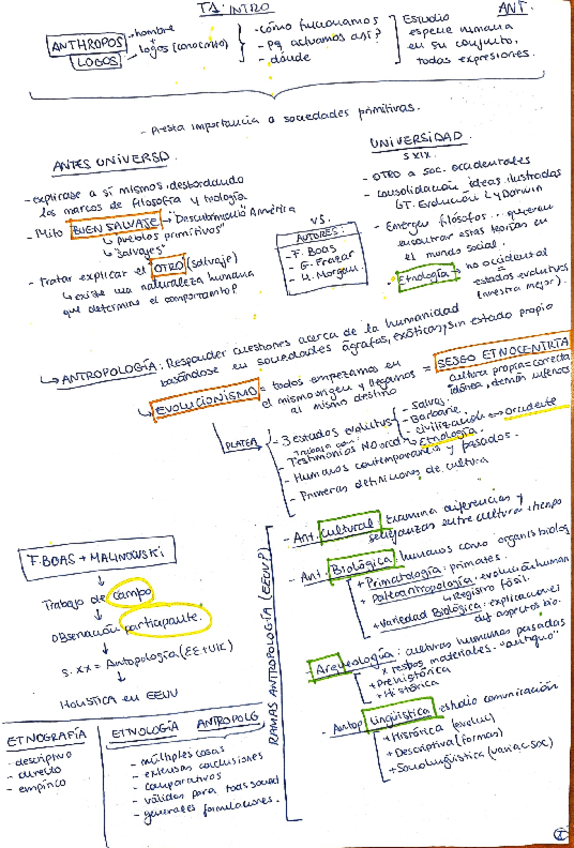 T1: INTRO
ANT.
ANTHROPOS
LOGOS
hombre
+
logos (conocmto)
- cómo funcionamos
- pq actuamos así?
- dónde
Estudio
especie humana
en su conjunto,
todas expresiones.
- Presta importancia a sociedades primitivas.
ANTES UNIVERSD.
- explicarse a sí mismos desbordando
los marcos de filosofía y teología
- Mito BUEN SALVAJE → Descubrimiento América
↳ "pueblos primitivos"
↳ "salvajes"
- Tratar explicar el OTRO (salvaje)
↳ existe una naturaleza humana
que determine el comportamto?
VS.
AUTORES:
- F. BOAS
- G. Frazer
- H. Morgan.
UNIVERSIDAD
S XIX.
- OTRO a soc. occidentales
- Consolidación ideas ilustradas
GT. Evolución L y Darwin
- Emergen filósofos... quieren
encontrar estas teorías en
el mundo social.
- Etnología → no occidental
=
estados evolutivos
(nuestra mejor).
↳ ANTROPOLOGÍA: Responder cuestiones acerca de la humanidad
basándose en sociedades ágrafas, exóticas y sin estado propio
↳ EVOLUCIONISMO = todos empezamos en
el mismo origen y llegamos
al mismo destino
= SESGO ETNOCENTRTA
cultura propia = correcta
idónea, demás inferiores
PLATEA
- 3 estados evolutivos
- Salvaj.
- Barbarie.
- Civilización ⇒ occidente
trabaja con:
- Testimonios NO occd → Etnología.
- Humanos contemporáneos y pasados.
- Primeras definiciones de cultura
F. BOAS + MALINOWSKI
↓
Trabajo de campo
↓
Observación participante.
↓
S. XX = Antopología (EE + UK)
↓
Holística en EEUU
ETNOGRAFÍA
- descriptivo
- directo
- empírico
ETNOLOGÍA ANTROPOLG
- múltiples casos
- extensas conclusiones
- comparativos
- válidos para todas socied
- generales formulaciones.
RAMAS ANTROPOLOGÍA (EEUU)
- Ant. Cultural: Examina diferencias y
semejanzas entre cultura y tiempo
- Ant. Biológica: humanos como organis biolog
+ Primatología: primates.
+ Paleoantropología: evolución human
x registro fósil.
+ Variedad Biológica: explicaciones
dif aspectos bio.
- Arqueología: culturas humanas pasadas
x restos materiales. "antiguo"
+ Prehistórica
+ Histórica
- Antop Lingüística: estudio comunicación
+ Histórica (evoluc)
+ Descriptiva (formas)
+ Sociolingüística (variac. soc)